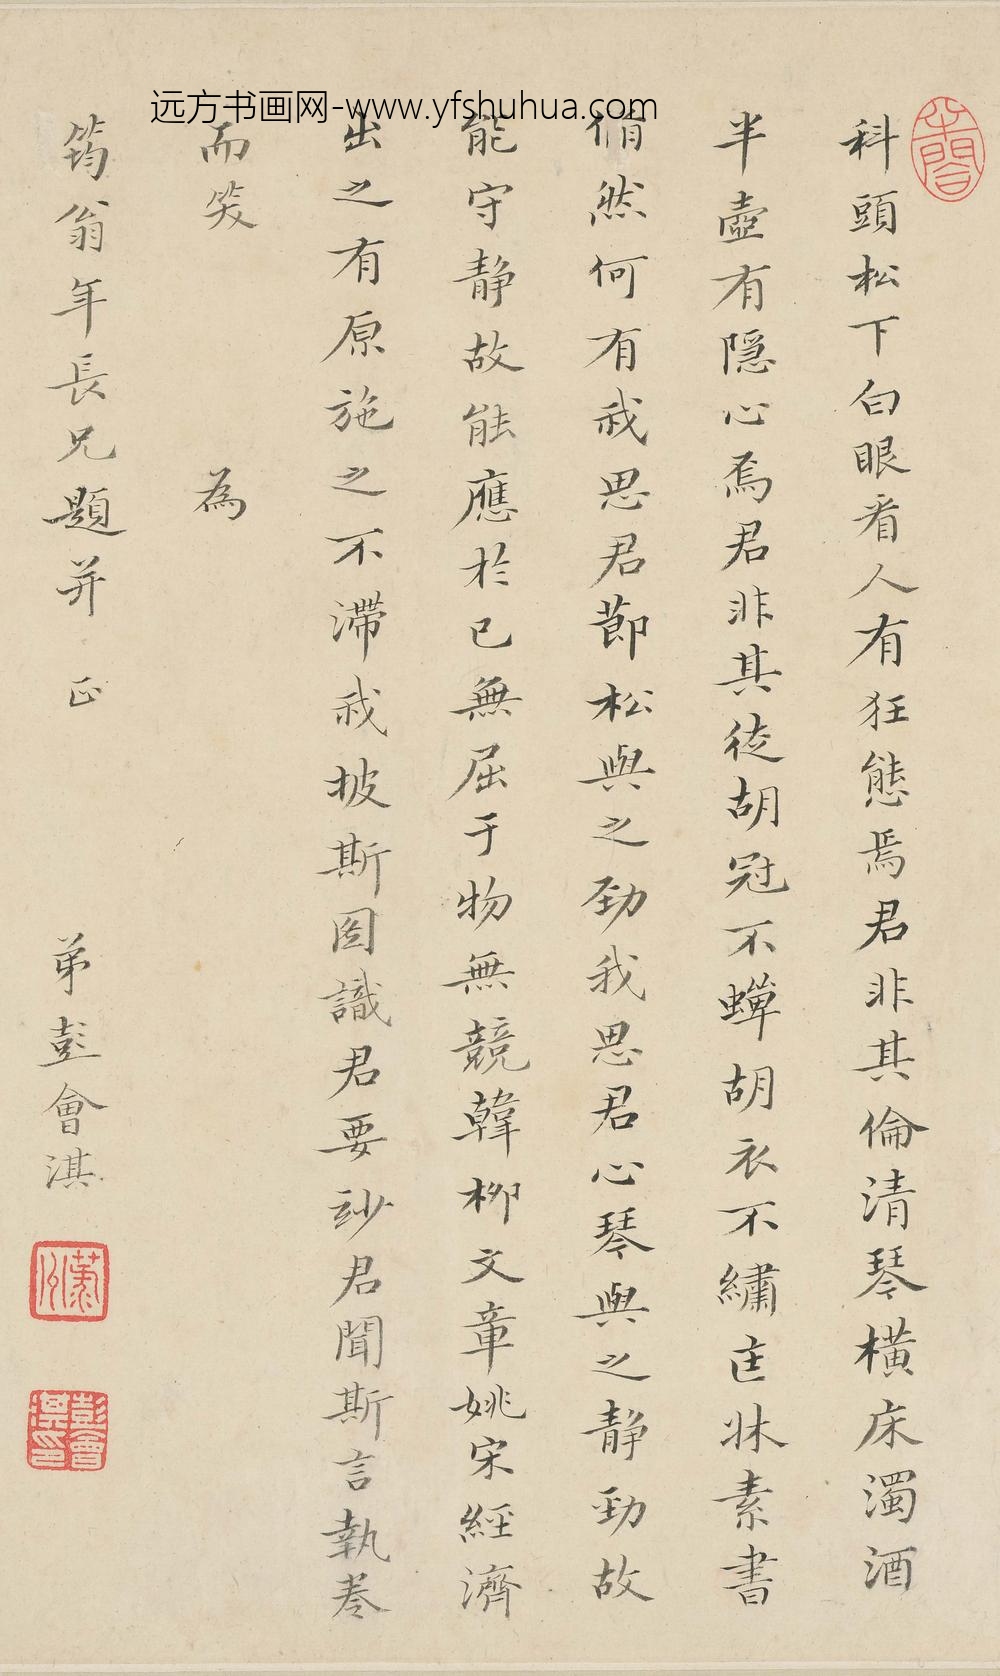 远方书画网-www.yfshuhua.com
科頭松下白眼看人有狂態焉君非其倫清琴橫床濁酒
半壺有隱心焉君非其徒胡冠不蟬胡衣不繡匡牀素書
翛然何有我思君節松與之勁我思君心琴與之静勁故
能守静故能應於已無屈于物無競韓柳文章姚宋經濟
出之有原施之不滯我披斯图識君要玅君聞斯言執卷
而笑 為
筠翁年長兄題并正 弟彭會淇
彭會淇印